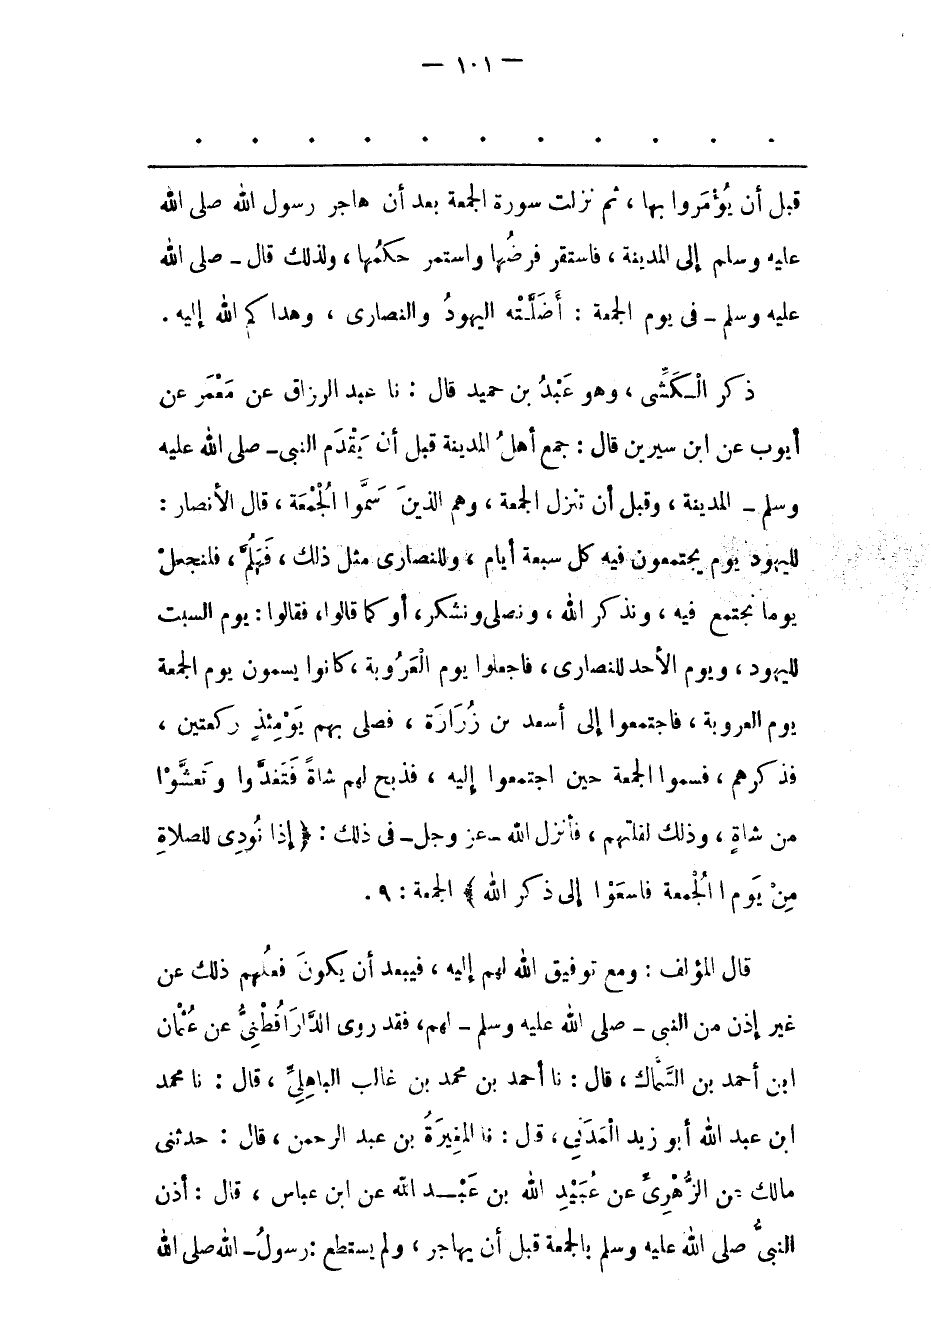 — ١٠١ —
. . . . . . . . . . .
قبل أن يُؤْمَروا بها ، ثم نزلت سورة الجمعة بعد أن هاجر رسول الله صلى الله
عليه وسلم إلى المدينة ، فاستقر فرضُها واستمر حكمُها ، ولذلك قال ــ صلى الله
عليه وسلم ــ فى يوم الجمعة : أَضَلَّتْه اليهودُ والنصارى ، وهداكم الله إليه .
ذكر الْـكَشِّى ، وهو عَبْدُ بن حميد قال : نا عبد الرزاق عن مَعْمَر عن
أيوب عن ابن سيرين قال : جمع أهلُ المدينة قبل أن يَقْدَم النبى ــ صلى الله عليه
وسلم ــ المدينة ، وقبل أن تنزل الجمعة ، وهم الذينَ سَمَّوا الْجُمْعَة ، قال الأنصار :
لليهود يوم يجتمعون فيه كل سبعة أيام ، وللنصارى مثل ذلك ، فَهَلُمَّ ، فلنجعلْ
يوما نجتمع فيه ، ونذكر الله ، ونصلى ونشكر ، أو كما قالوا ، فقالوا : يوم السبت
لليهود ، ويوم الأحد للنصارى ، فاجعلوا يوم الْعَرُوبة ، كانوا يسمون يوم الجمعة
يوم العروبة ، فاجتمعوا إلى أسعد بن زُرَارَة ، فصلى بهم يَوْمِئذٍ ركعتين ،
فذكرهم ، فسموا الجمعة حين اجتمعوا إليه ، فذبح لهم شاةً فَتَغدَّوا وتَعشَّوْا
من شاةٍ ، وذلك لقلتهم ، فأنزل الله ــ عز وجل ــ فى ذلك : ﴿ إذا نُودِى للصلاةِ
مِنْ يَوم الْجُمعة فاسعَوْا إلى ذكر الله ﴾ الجمعة : ٩ .
قال المؤلف : ومع توفيق الله لهم إليه ، فيبعد أن يكونَ فعلُهم ذلك عن
غير إذن من النبى ــ صلى الله عليه وسلم ــ لهم ، فقد روى الدَّارَاقُطْنِيُّ عن عُثْمان
ابن أحمد بن السَّمَّاك ، قال : نا أحمد بن محمد بن غالب الباهلِيِّ ، قال : نا محمد
ابن عبد الله أبو زيد الْمَدَنِي ، قال : نا المغِيرَةُ بن عبد الرحمن ، قال : حدثنى
مالك عن الزُّهْرِىِّ عن عُبَيْدِ الله بن عَبْــد الله عن ابن عباس ، قال : أذن
النبىُّ صلى الله عليه وسلم بالجمعة قبل أن يهاجر ، ولم يستطع : رسولُ ــ الله صلى الله